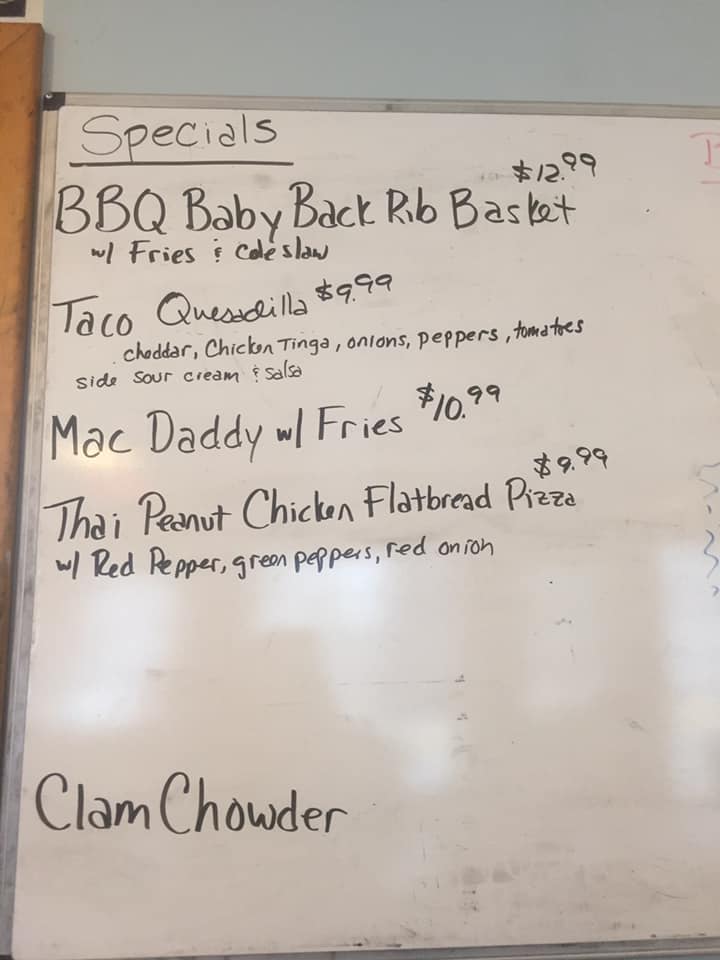 Specials
$12.99
BBQ Baby Back Rib Basket
w/ Fries & Coleslaw
Taco Quesadilla $9.99
cheddar, Chicken Tinga, onions, peppers, tomatoes
side sour cream & salsa
Mac Daddy w/ Fries $10.99
$9.99
Thai Peanut Chicken Flatbread Pizza
w/ Red Pepper, green peppers, red onion
Clam Chowder